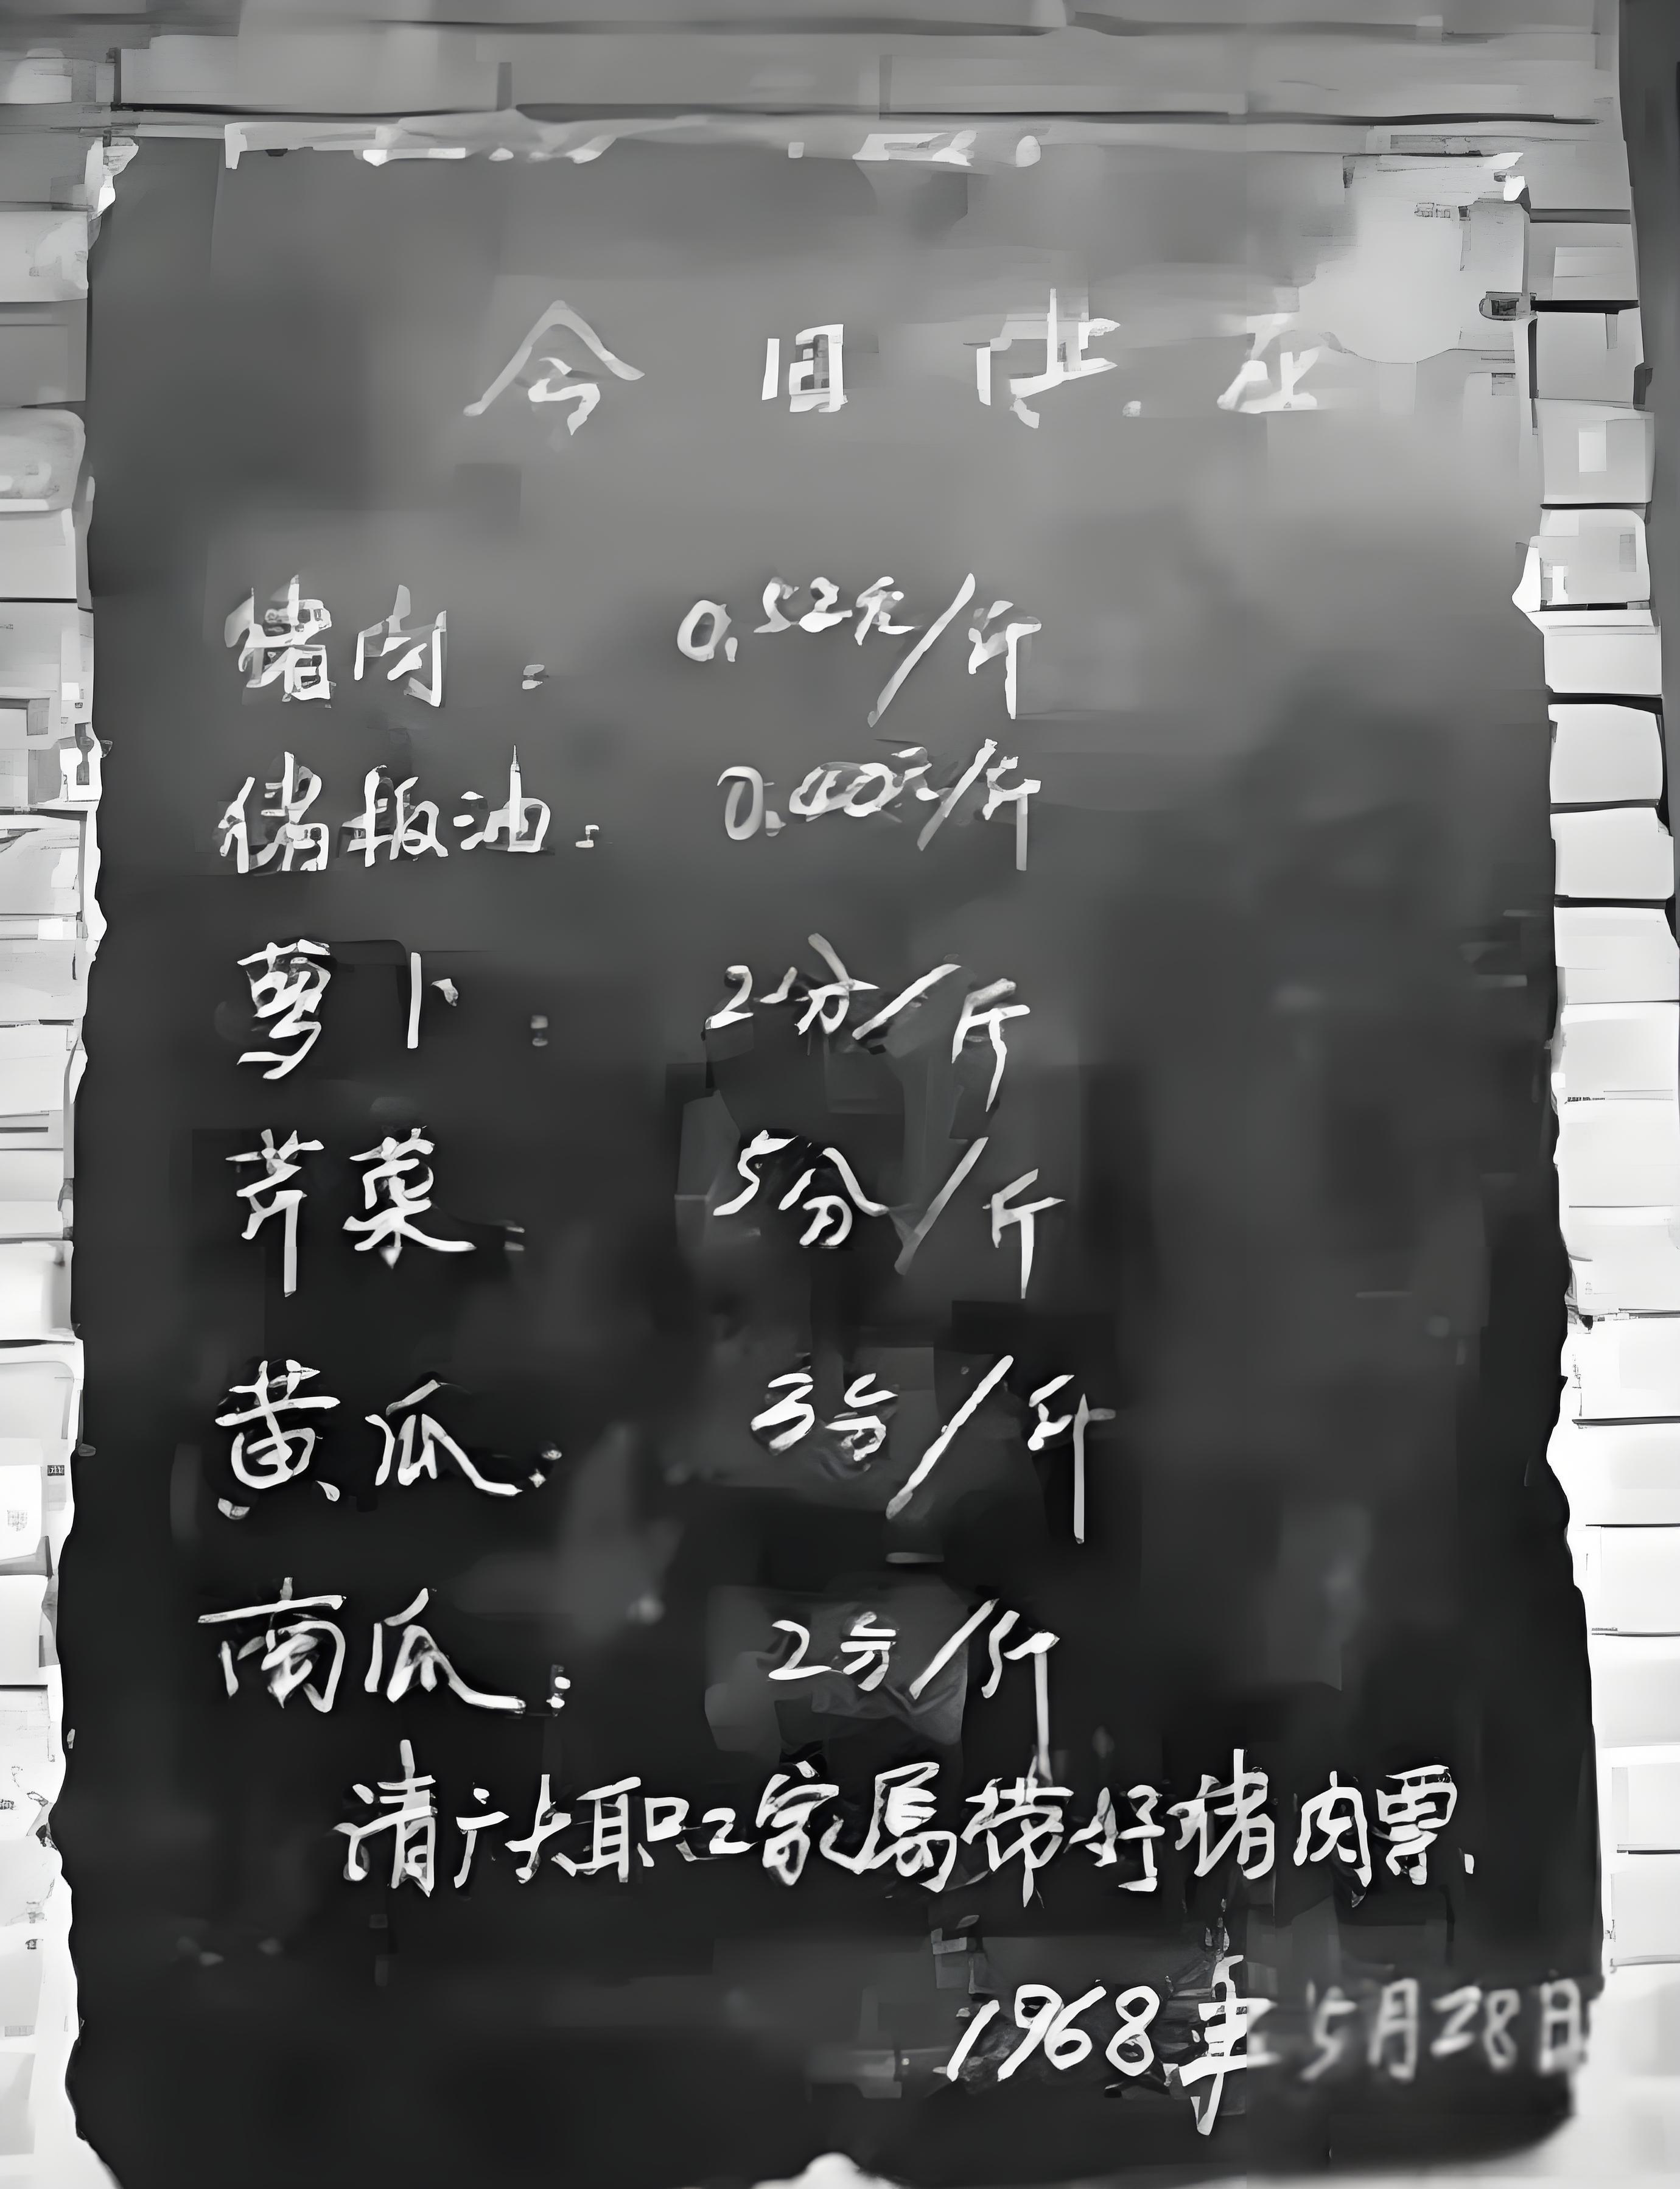 今日供应
猪肉: 0.52元/斤
猪板油: 0.40元/斤
萝卜: 2分/斤
芹菜: 5分/斤
黄瓜: 3分/斤
南瓜: 2分/斤
请广大职工家属带好猪肉票.
1968年5月28日